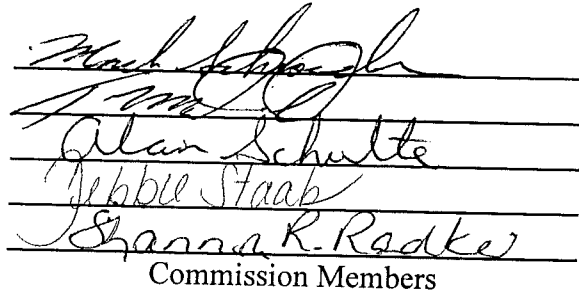 Mark
Alan Schulte
Debbie Staab
Shanna R. Radke
Commission Members